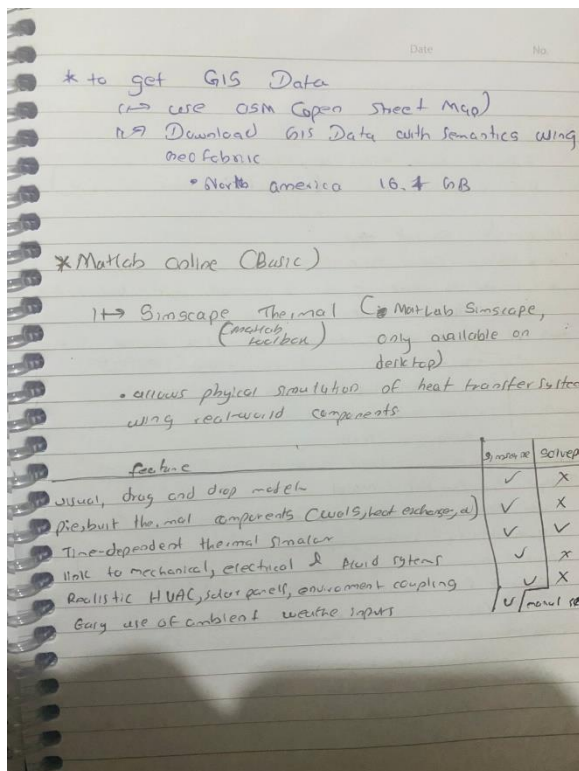 Date No.
* to get GIS Data
use OSM (open street Map)
Download GIS Data with Semantics using
Geofabric
• North america 16.1 GB
* Matlab online (Basic)
1↦ Simscape Thermal (MatLab Simscape,
(matlab toolbox) only available on
desktop)
• allows phyical simulation of heat transfer
using real-world components
feature Solvep
visual, drag and drop model ✓ X
thermal components ✓ X
Time-dependent thermal ✓ ✓
link to mechanical, electrical & fluid sytems ✓ X
Realistic HVAC, solar panels, enviroment coupling ✓ X
Easy use of ambient weathe inputs ✓